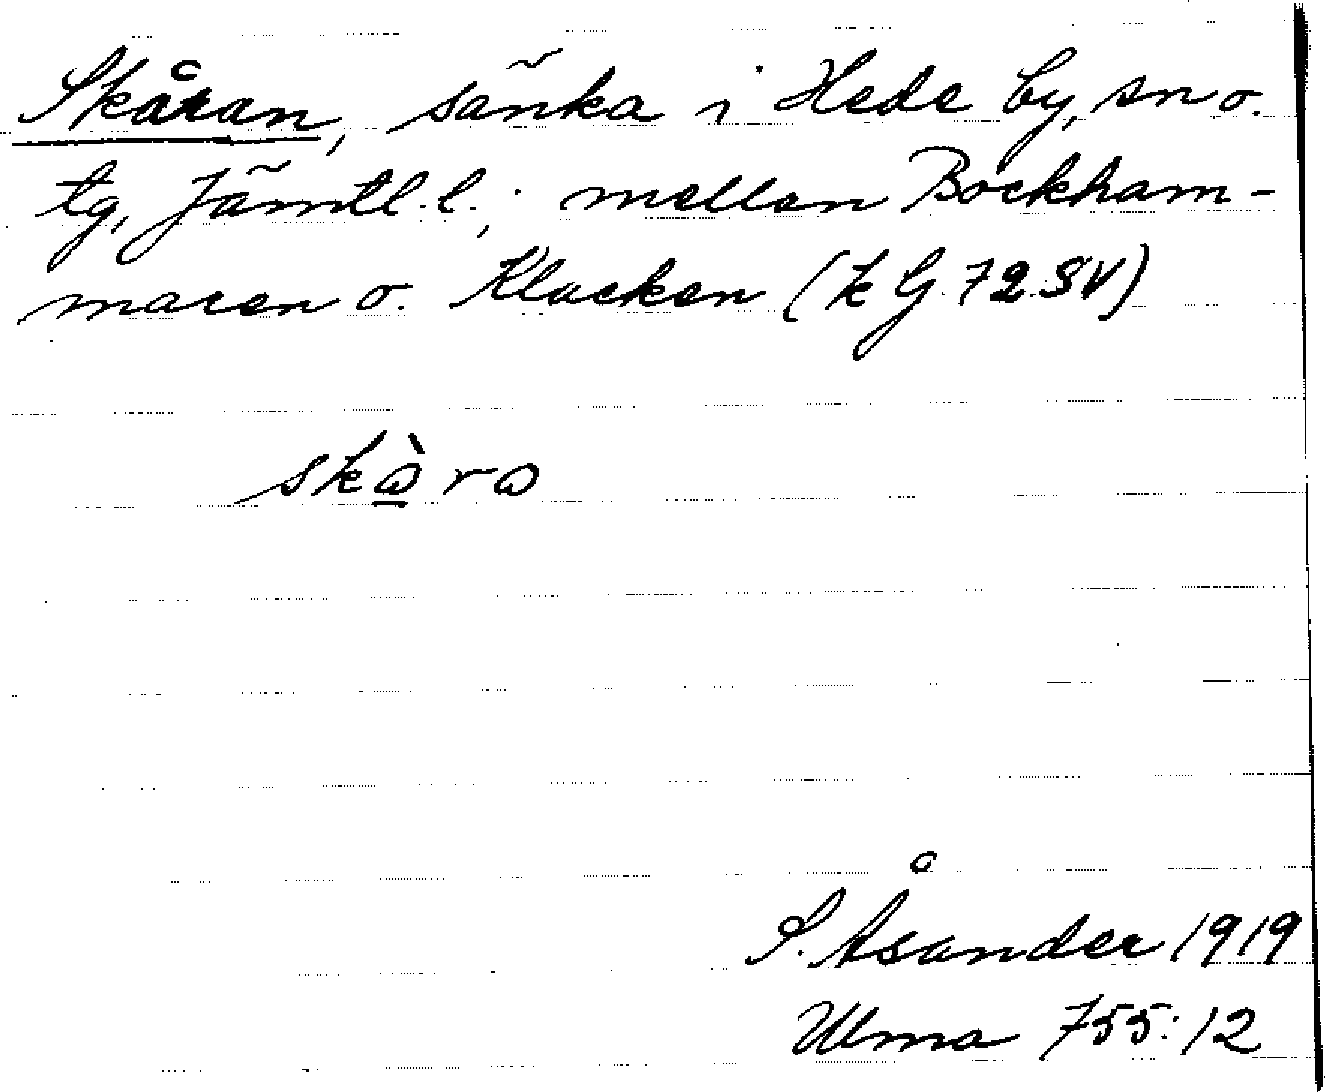 Skåran, sänka i Hede by, sn o.
tg, Jämtl. l.; mellan Bockham-
maren o. Klacken (k G. 72 SV)
skὼrω
S. Åsander 1919
Ulma 755:12